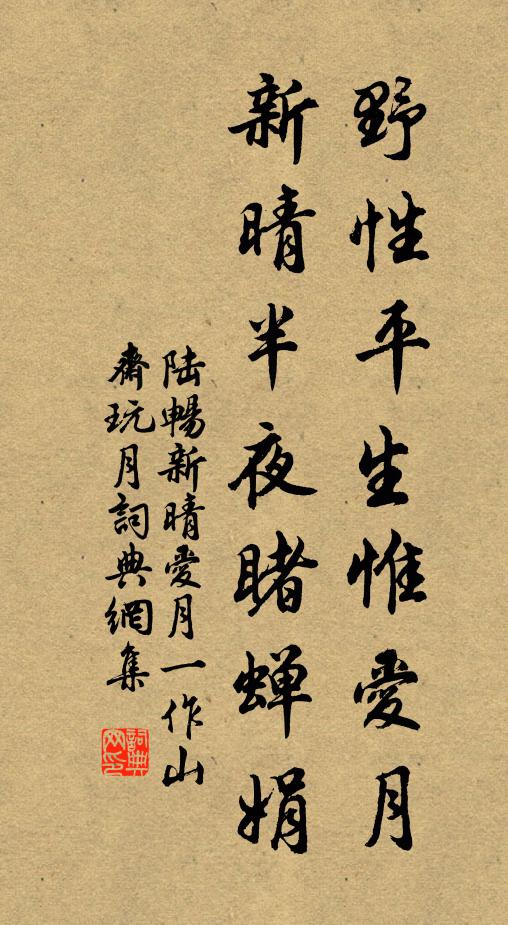 野性平生惟愛月
新晴半夜睹蟬娟
陆暢新晴愛月一作山
齋玩月詞典網集
詞典
网印